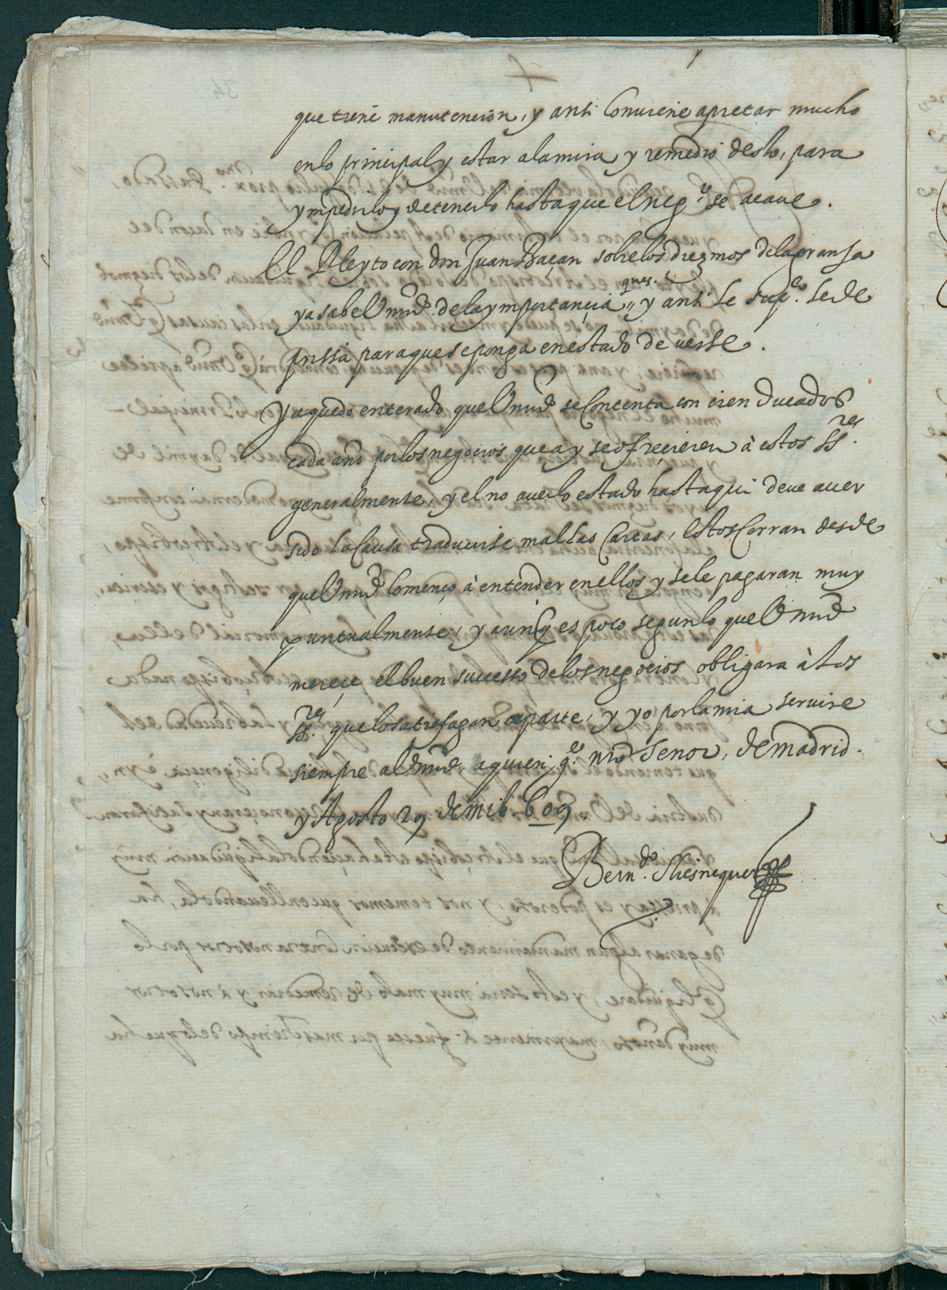 que tiene manutencion, y anti Conviene apretar mucho
en lo principal y estar alamira y remedio desto, para
ympedirlo y detenerlo hasta que el neg.º se acave.
El Pleyto con don Juan Baçan sobre los diezmos dela granja
ya sabe Vmd. dela ymportancia ques. y anti le sup.co sele de
prissa para que se ponga en estado de verse.
Ya quedo enterado que Vmd se Contenta con cien ducados
cada año por los negocios que ay y se ofrecieren à estos SS.res
generalmente, y el no averlo estado hasta aqui deve aver
sido la Causa traducirse mal las Cartas, estos Correran desde
que Vmd Començo à entender en ellos y sele pagaran muy
puntualmente, y aunq es poco segun lo que Vmd
merece, el buen sucesso delos negocios obligara à los
SS.res que lo satisfagan aparte, y yo por la mia servire
siempre a Vmd, a quien g.e nro Señor, de Madrid.
y Agosto 29 de mil 609
Bern.do